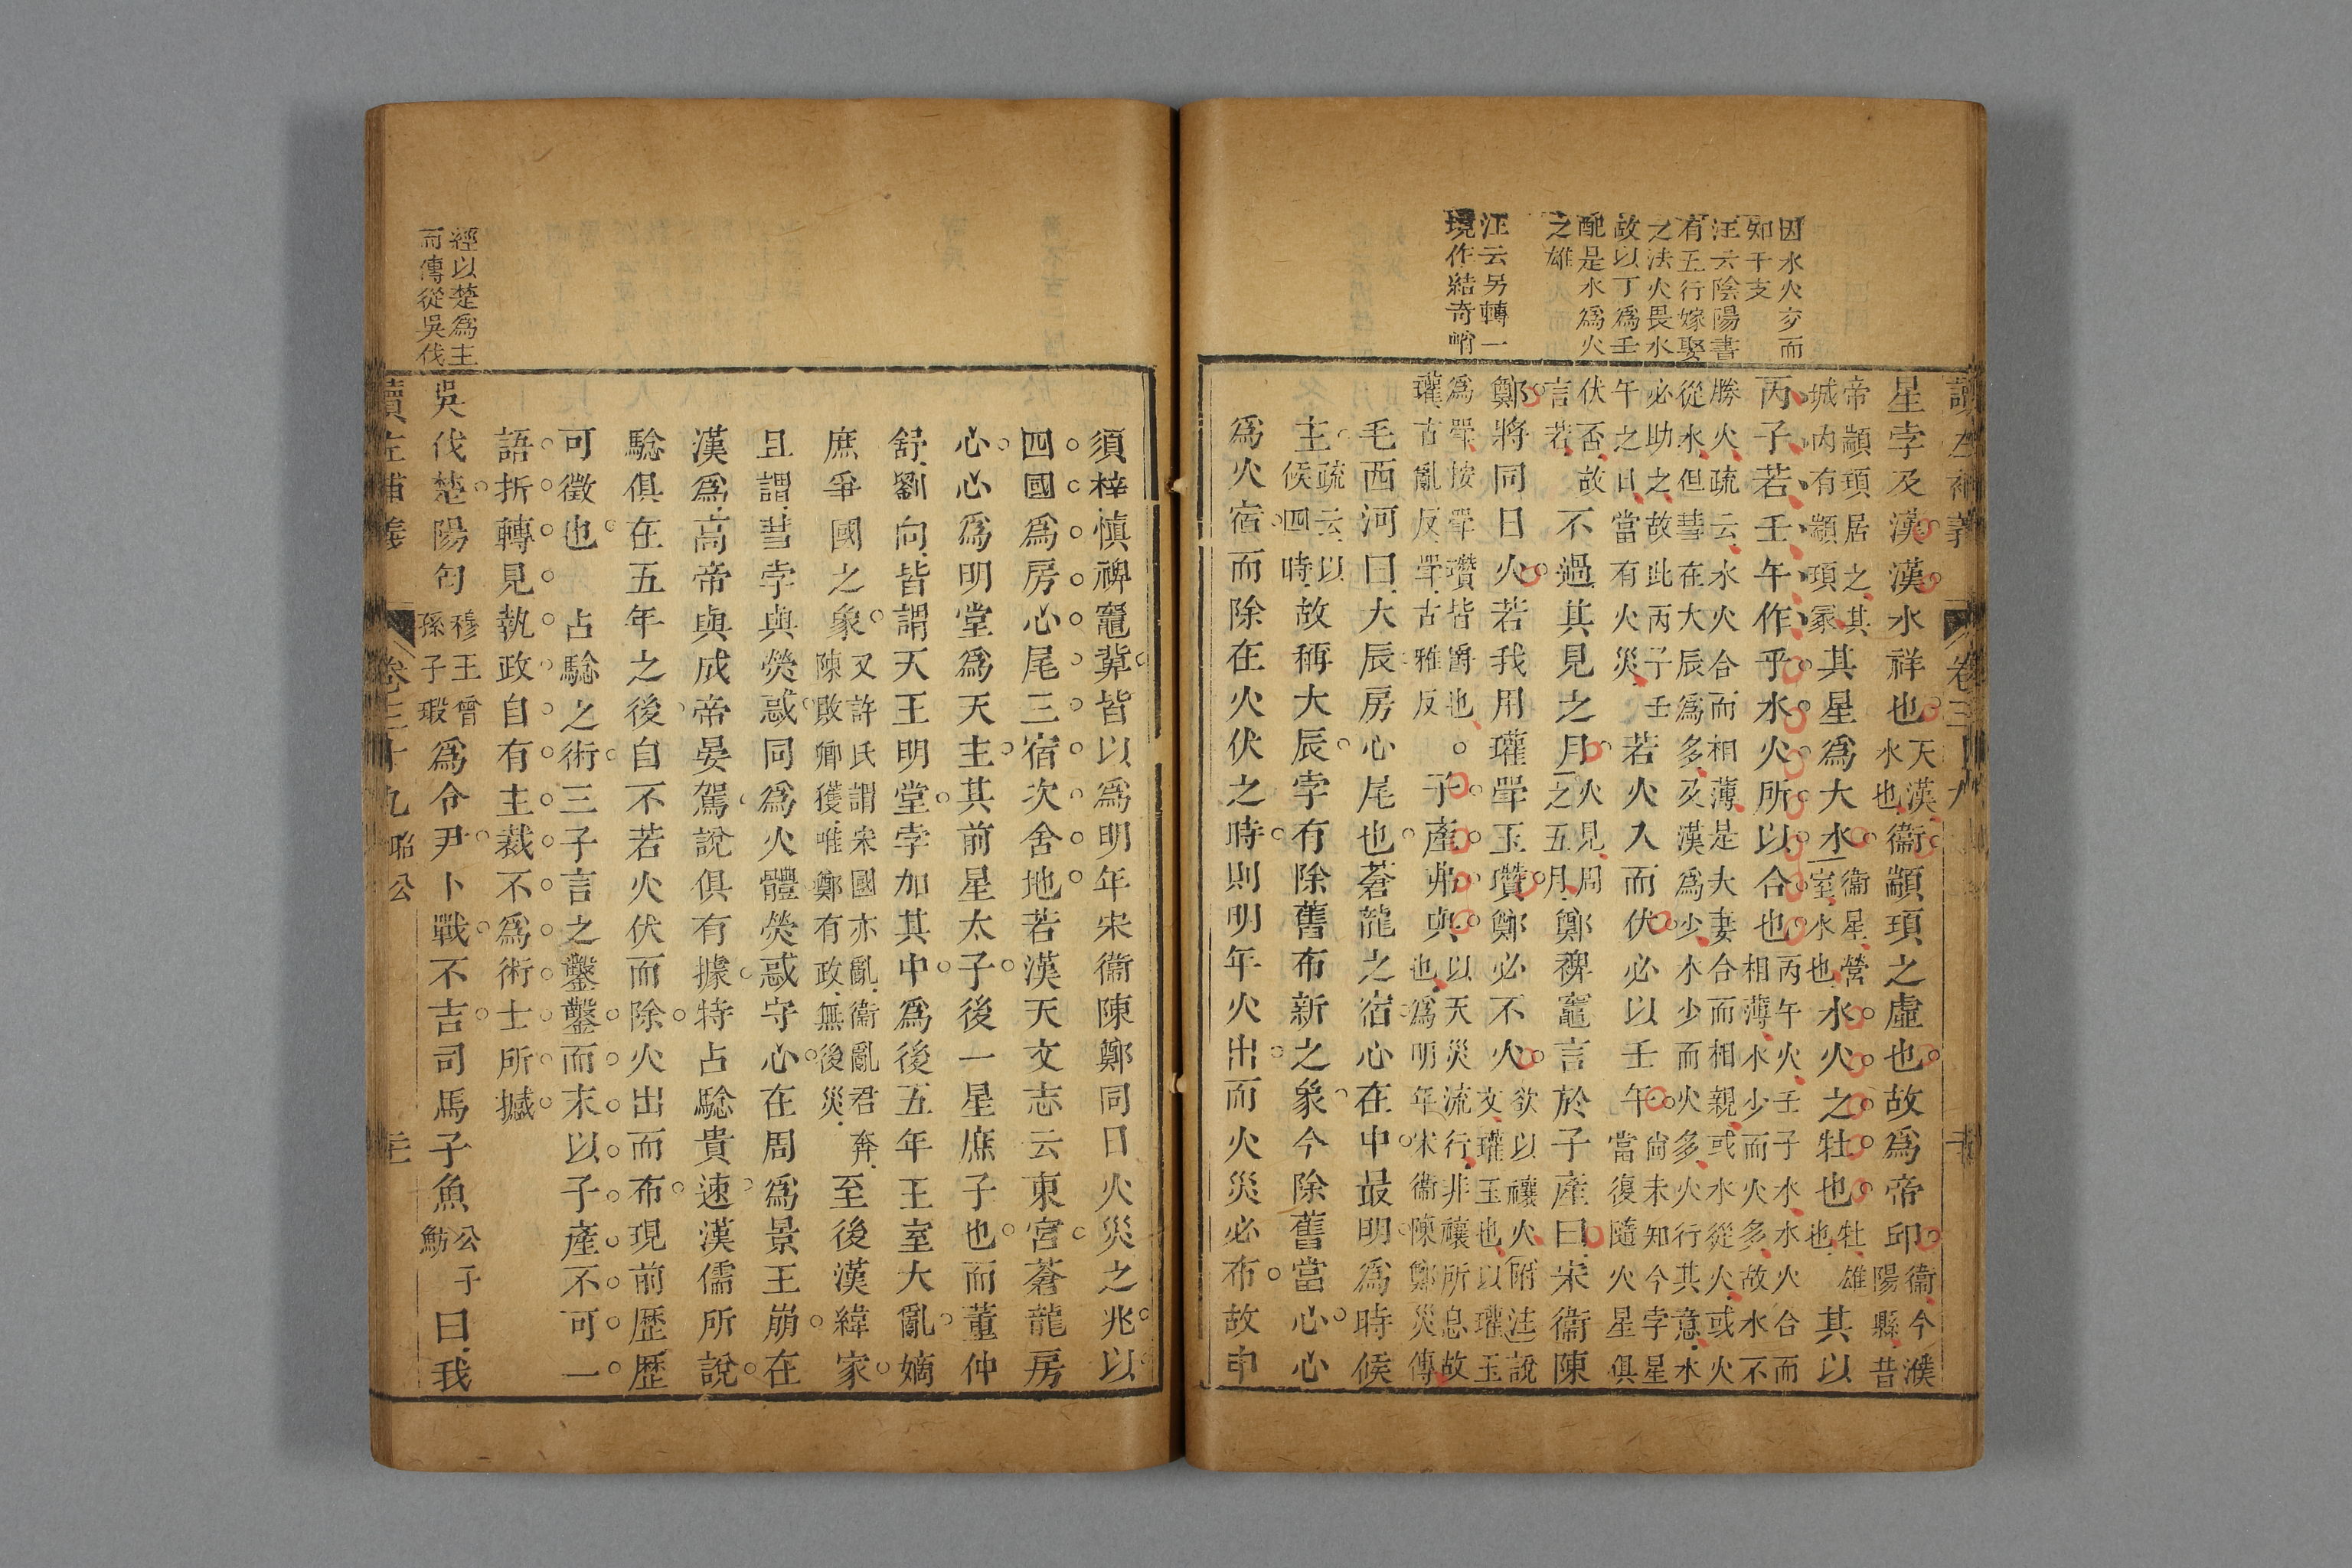 讀左補義　卷三十九
因水火交而
知干支
汪云陰陽書
有五行嫁娶
之法火畏水
故以丁爲壬
配是水爲火
之雄
汪云另轉一
境作結奇峭
星孛及漢漢水祥也天漢水也衞顓頊之虛也故爲帝邱衞今濮陽縣昔
帝顓頊居之其城内有顓頊冢其星爲大水衞星營室水也水火之牡也牡雄也其以
丙子若壬午作乎水火所以合也丙午火壬子水水火合而相薄水少而火多故水不
勝火疏云水火合而相薄是夫妻合而相親或水從火或火從水但彗在大辰爲多及漢爲少水少而火多火行其意水
必助之故此丙子壬午之日當有火災若火入而伏必以壬午尙未知今孛星當復隨火星俱
伏否故言若不過其見之月火見周之五月鄭裨竈言於子產曰宋衞陳
鄭將同日火若我用瓘斝玉瓚鄭必不火欲以禳火附注說文瓘玉也以瓘玉
爲斝按斝瓚皆爵也瓘古亂反斝古雅反。子產弗與以天災流行非禳所息故也爲明年宋衞陳鄭災傳
毛西河曰大辰房心尾也蒼龍之宿心在中最明爲時候
主疏云以候四時故稱大辰孛有除舊布新之象今除舊當心心
爲火宿而除在火伏之時則明年火出而火災必布故申
須梓愼裨竈筭皆以爲明年宋衞陳鄭同日火災之兆以
四國爲房心尾三宿次舍地若漢天文志云東宮蒼龍房
心心爲明堂爲天主其前星太子後一星庶子也而董仲
舒劉向皆謂天王明堂孛加其中爲後五年王室大亂嫡
庶爭國之象又許氏謂宋國亦亂衞亂君奔陳敗卿獲唯鄭有政無後災至後漢緯家
且謂彗孛與熒惑同爲火體熒惑守心在周爲景王崩在
漢爲高帝與成帝晏駕說俱有據特占騐貴速漢儒所說
騐俱在五年之後自不若火伏而除火出而布現前歷歷
可徵也　占騐之術三子言之鑿鑿而末以子產不可一
語折轉見執政自有主裁不爲術士所撼
經以楚爲主
而傳從吳伐
吳伐楚陽匄穆王曾孫子瑕爲令尹卜戰不吉司馬子魚公子魴曰我
讀左補義　卷三十九　昭公